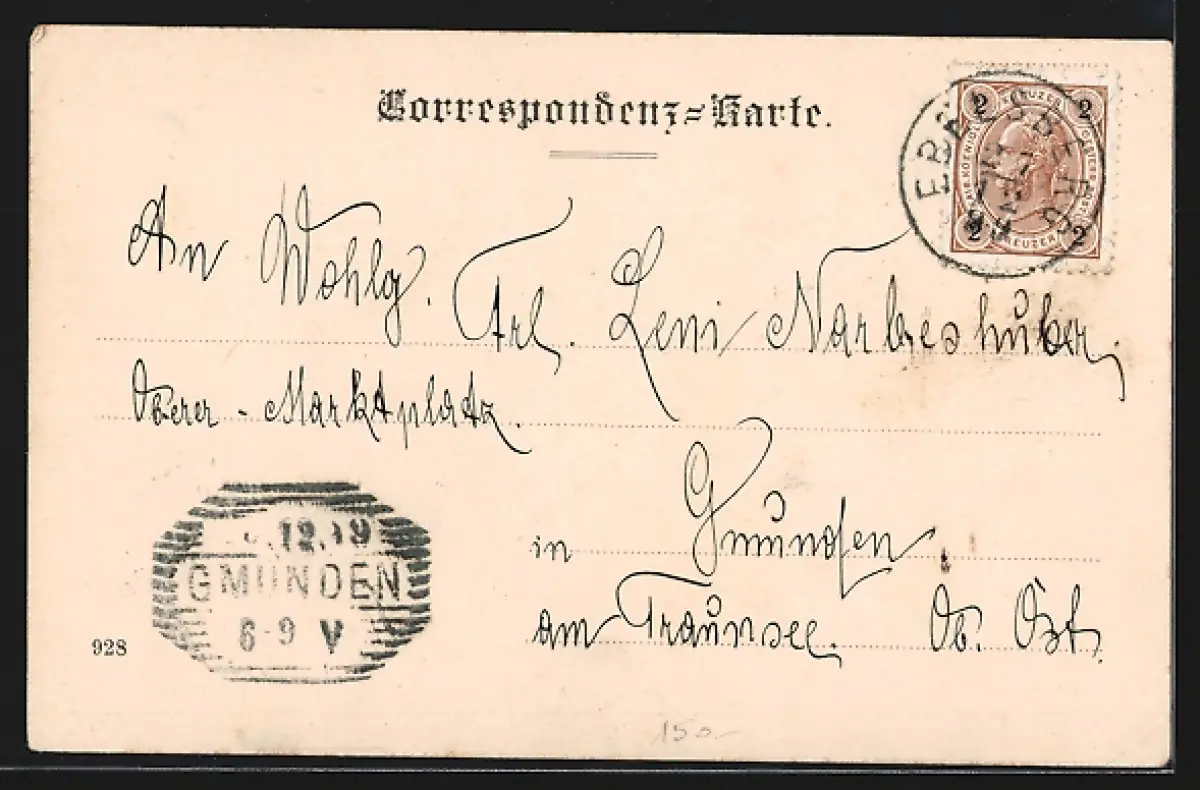 Correspondenz=Karte.
EBELSBERG
2 KREUZER 2
2 KREUZER 2
An Wohlg. Frl. Leni Narbeshuber,
Oberer - Marktplatz.
in Gmunden
am Traunsee. Ob. Öst.
.12.99
GMUNDEN
6-9 V
928
150-